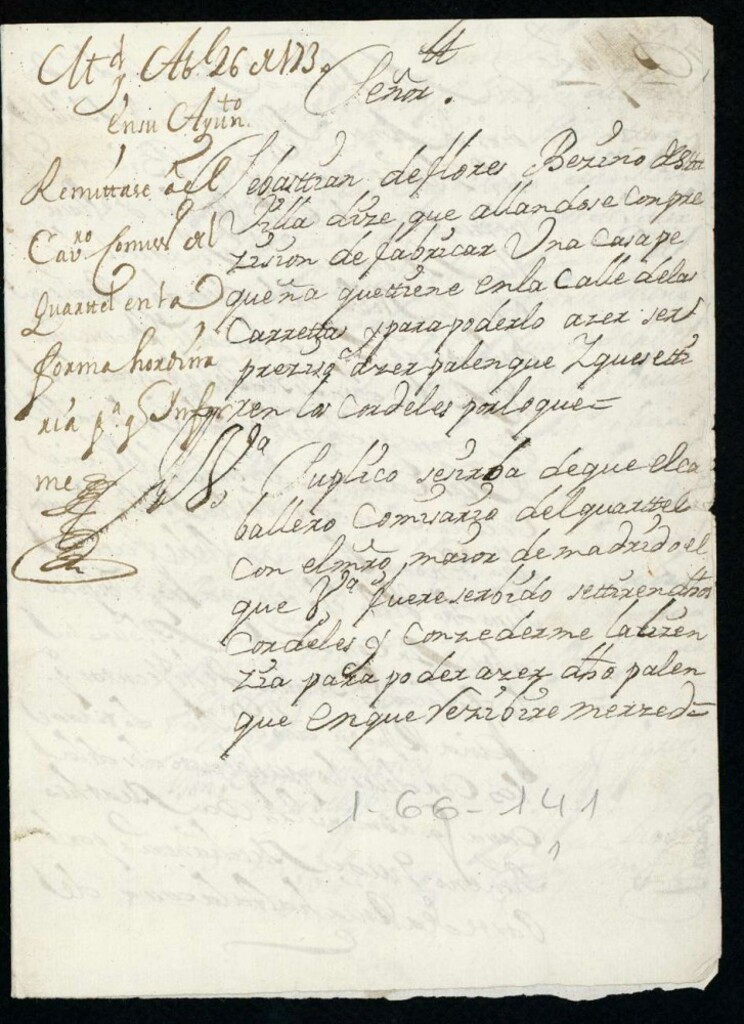 Md y Abl 26 de 1723
en su Ayunto
Remittase al
Cavro Comisso del
Quarttel en la
forma hordina
ria pa q Ynfor
me
tt
Señor.
Sebasttian de flores Bezino destta
Villa dize que allandose con pre
zision de fabricar Una casa pe
queña que ttiene en la Calle de las
Carrettas y para poderlo azer ser
preziso azer palenque Y que se tti
ren los Cordeles por lo que =
A V Sa
Suplico se sirba de que el ca
ballero Comisario del quarttel
con el mro maior de madrid o el
que V Sa fuere serbido se ttiren dhos
Cordeles y Conzederme la lizen
zia para poder azer dho palen
que en que Rezibire merzed =
1-66-141
1